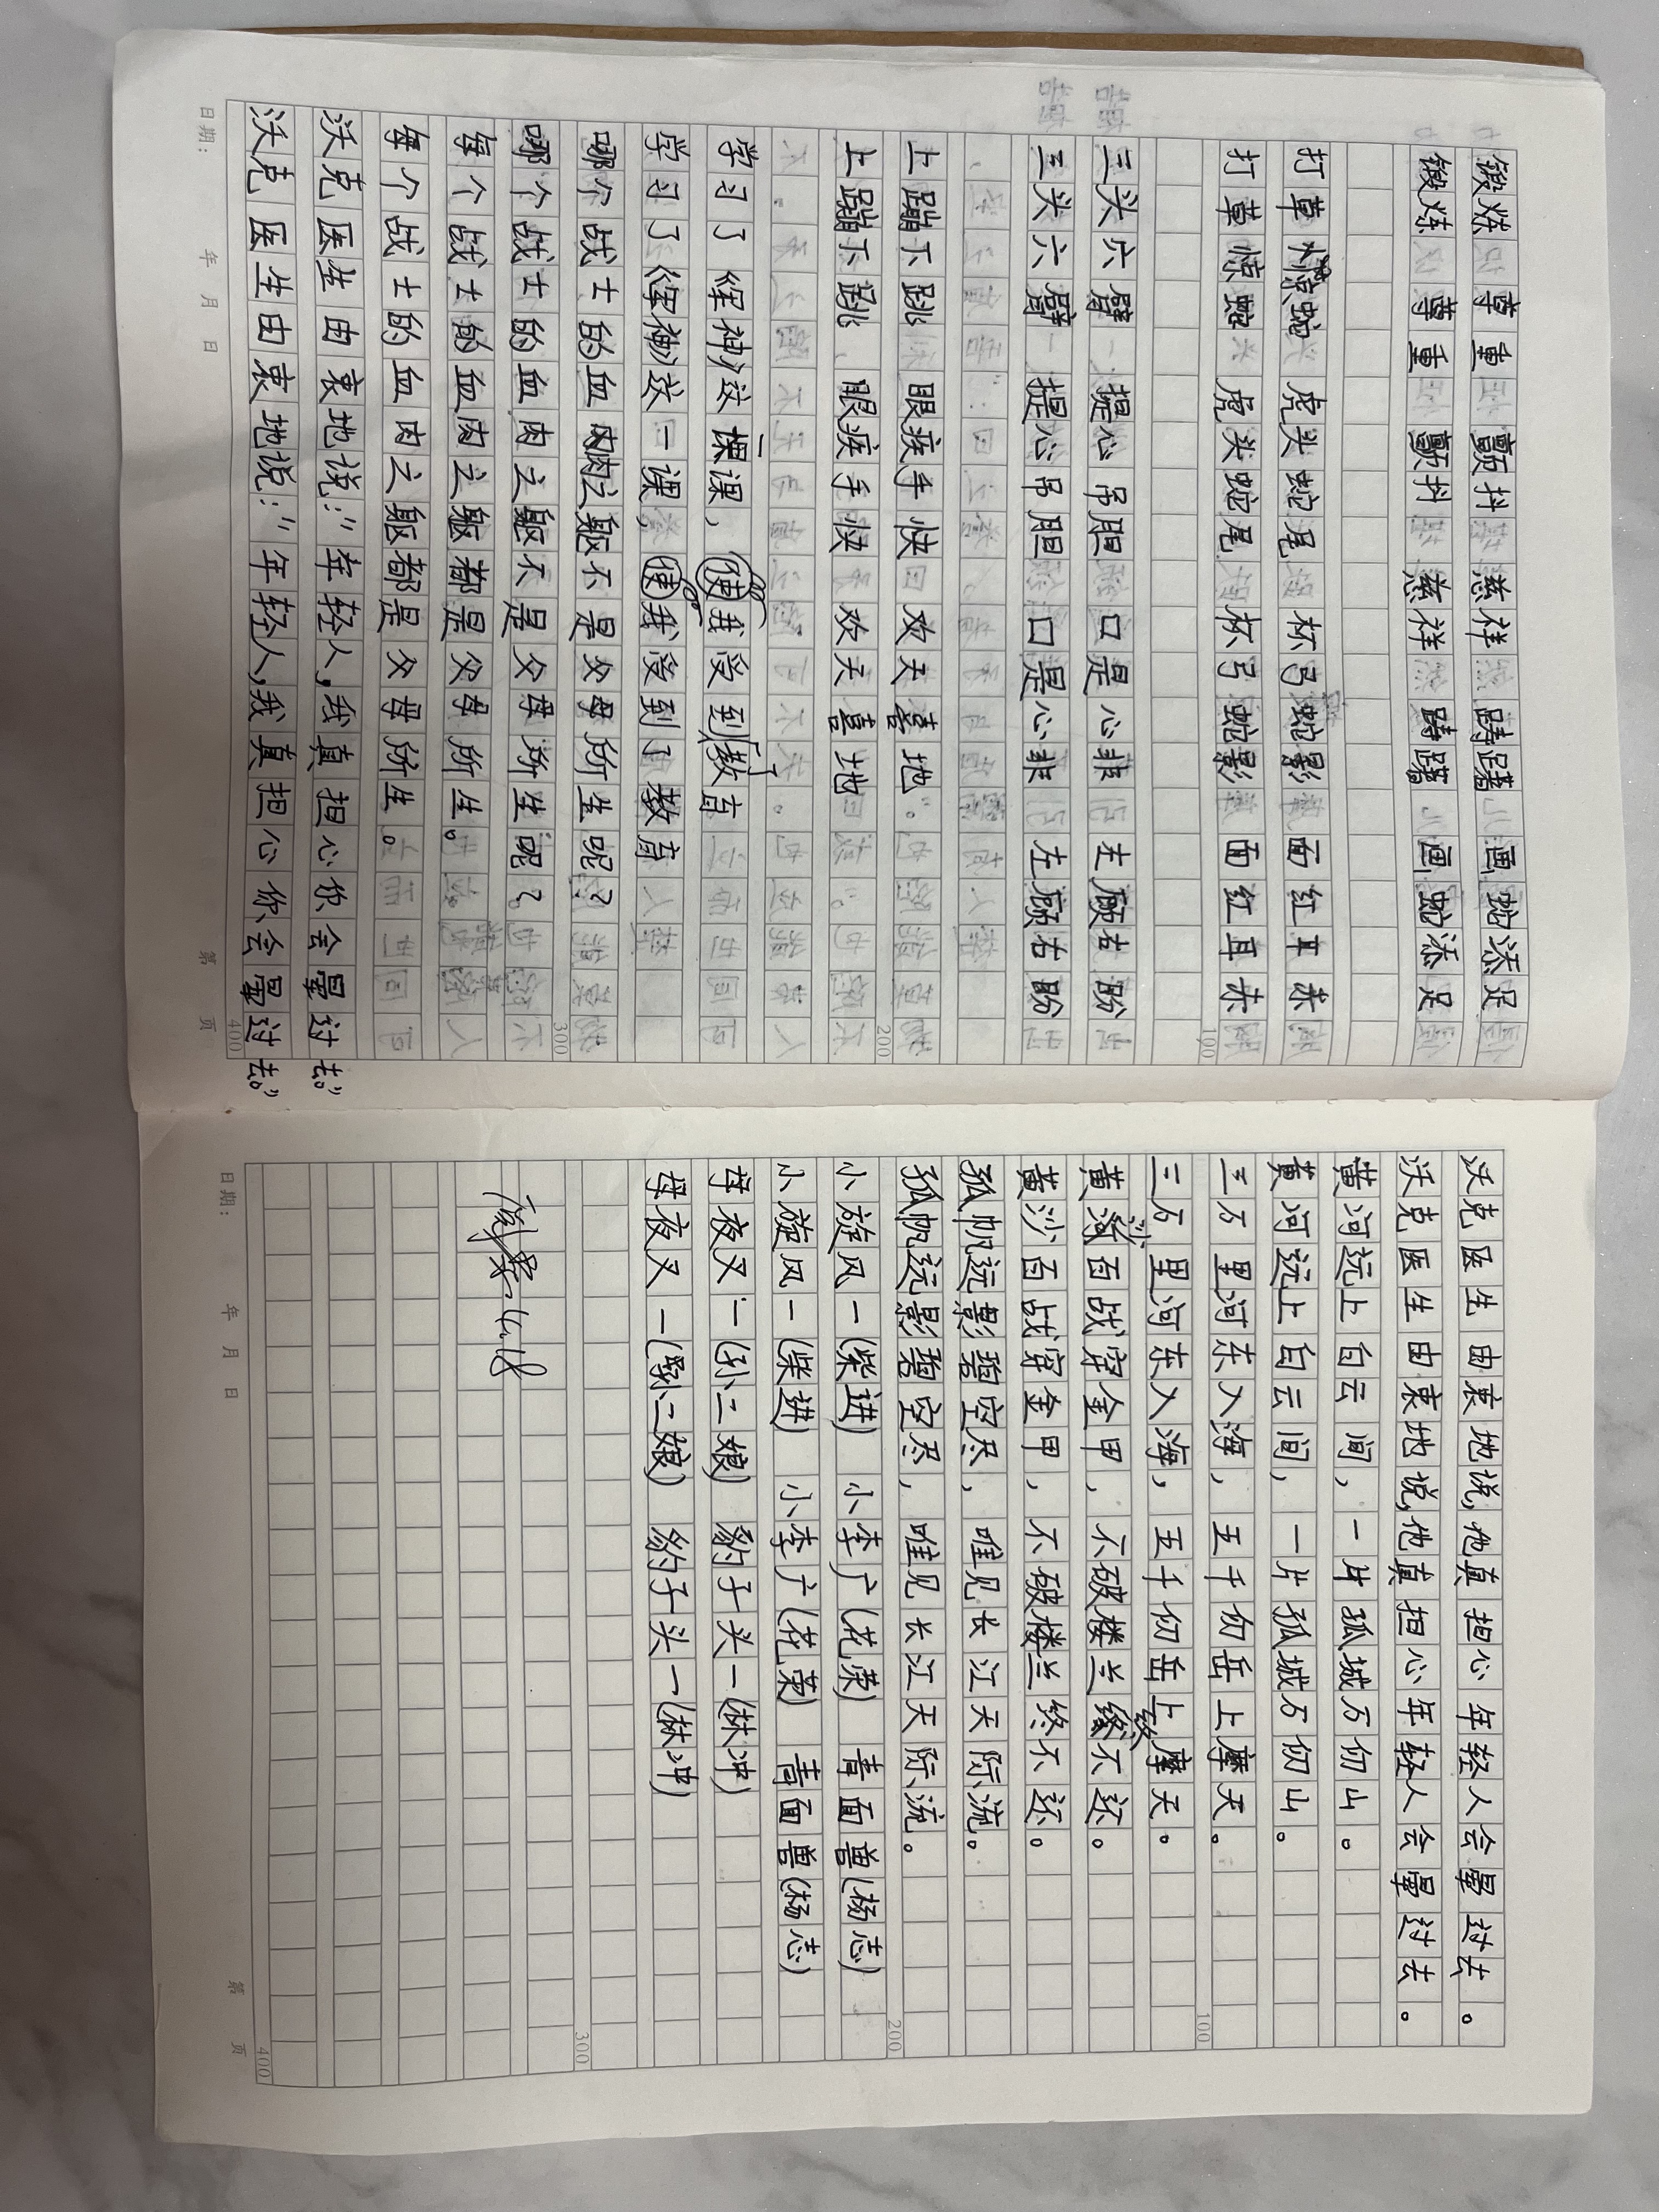 锻炼 尊重 颤抖 慈祥 踌躇 画蛇添足
锻炼 尊重 颤抖 慈祥 踌躇 画蛇添足
打草惊蛇 虎头蛇尾 杯弓蛇影 面红耳赤
打草惊蛇 虎头蛇尾 杯弓蛇影 面红耳赤
三头六臂 提心吊胆 口是心非 左顾右盼
三头六臂 提心吊胆 口是心非 左顾右盼
上蹦下跳 眼疾手快 欢天喜地。
上蹦下跳 眼疾手快 欢天喜地
学习了《军神》这一课,使我受到了教育
学习了《军神》这一课,使我受到了教育
哪个战士的血肉之躯不是父母所生呢?
哪个战士的血肉之躯不是父母所生呢?
每个战士的血肉之躯都是父母所生。
每个战士的血肉之躯都是父母所生。
沃克医生由衷地说:“年轻人,我真担心你会晕过去。”
沃克医生由衷地说:“年轻人,我真担心你会晕过去。”
300
200
100
400
日期: 年 月 日 第 页
沃克医生由衷地说,他真担心年轻人会晕过去。
沃克医生由衷地说,他真担心年轻人会晕过去。
黄河远上白云间,一片孤城万仞山。
黄河远上白云间,一片孤城万仞山。
三万里河东入海,五千仞岳上摩天。
三万里河东入海,五千仞岳上摩天。
黄沙百战穿金甲,不破楼兰终不还。
黄沙百战穿金甲,不破楼兰终不还。
孤帆远影碧空尽,唯见长江天际流。
孤帆远影碧空尽,唯见长江天际流。
小旋风—(柴进) 小李广(花荣) 青面兽(杨志)
小旋风—(柴进) 小李广(花荣) 青面兽(杨志)
母夜叉—(孙二娘) 豹子头—(林冲)
母夜叉—(孙二娘) 豹子头—(林冲)
100
200
300
400
日期: 年 月 日 第 页